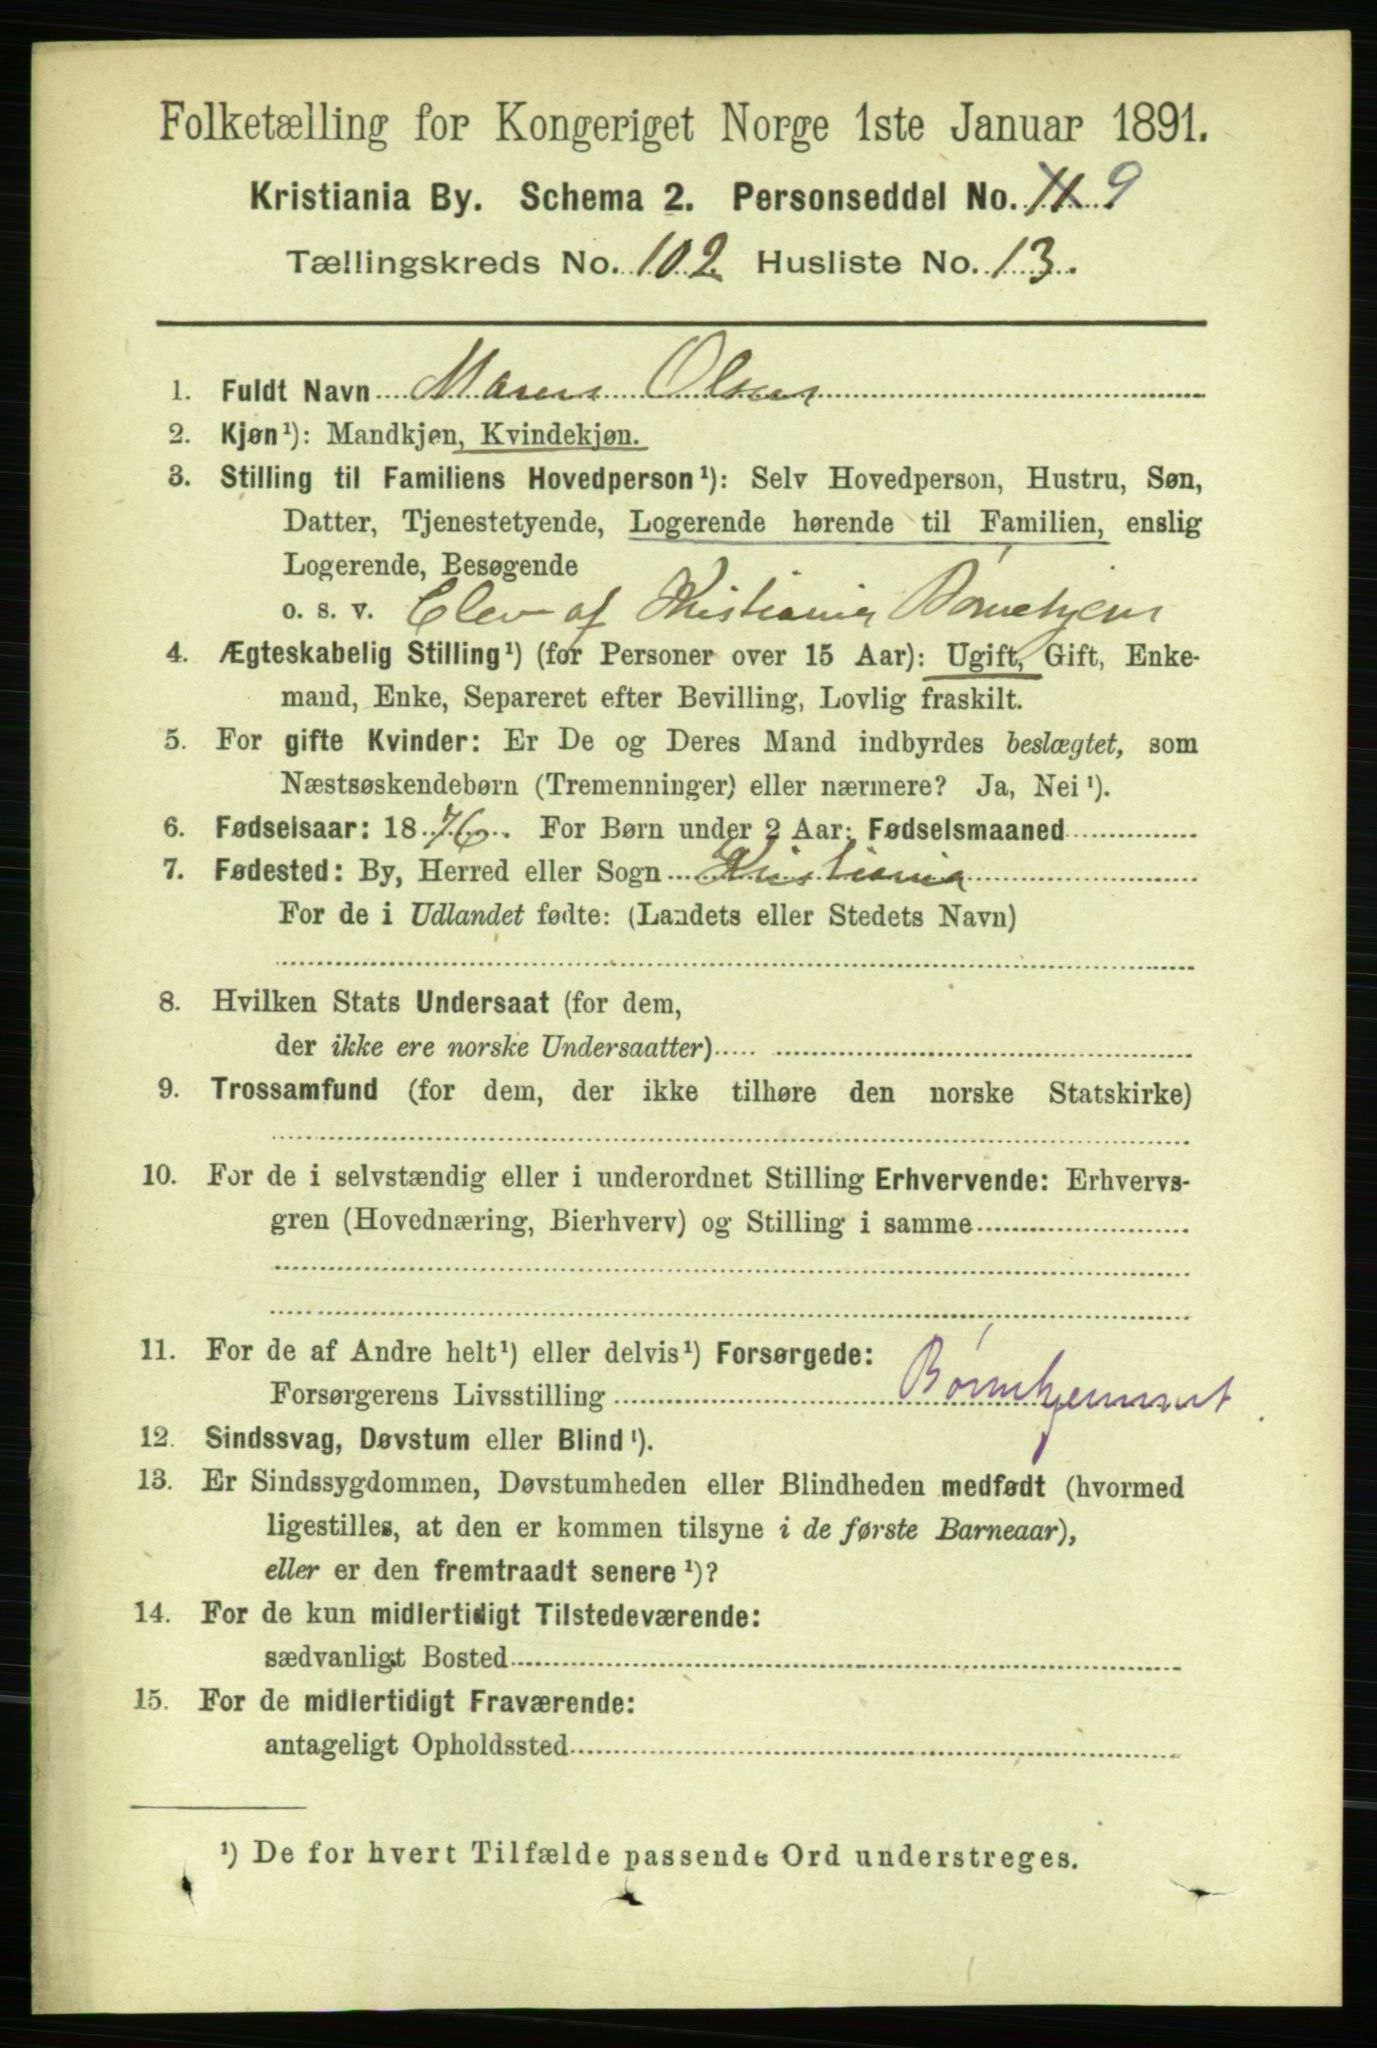 Folketælling for Kongeriget Norge 1ste Januar 1891.
Kristiania By. Schema 2. Personseddel No. 9
Tællingskreds No. 102 Husliste No. 13.
1. Fuldt Navn Maren Olsen
2. Kjøn¹): Mandkjøn, Kvindekjøn.
3. Stilling til Familiens Hovedperson¹): Selv Hovedperson, Hustru, Søn,
Datter, Tjenestetyende, Logerende hørende til Familien, enslig
Logerende, Besøgende
o. s. v. Elev af Kristiania Børnehjem
4. Ægteskabelig Stilling¹) (for Personer over 15 Aar): Ugift, Gift, Enke-
mand, Enke, Separeret efter Bevilling, Lovlig fraskilt.
5. For gifte Kvinder: Er De og Deres Mand indbyrdes beslægtet, som
Næstsøskendebørn (Tremenninger) eller nærmere? Ja, Nei¹).
6. Fødselsaar: 1876. For Børn under 2 Aar: Fødselsmaaned
7. Fødested: By, Herred eller Sogn Kristiania
For de i Udlandet fødte: (Landets eller Stedets Navn)
8. Hvilken Stats Undersaat (for dem,
der ikke ere norske Undersaatter)
9. Trossamfund (for dem, der ikke tilhøre den norske Statskirke)
10. For de i selvstændig eller i underordnet Stilling Erhvervende: Erhvervs-
gren (Hovednæring, Bierhverv) og Stilling i samme
11. For de af Andre helt¹) eller delvis¹) Forsørgede:
Forsørgerens Livsstilling Børnehjemmet
12. Sindssvag, Døvstum eller Blind¹).
13. Er Sindssygdommen, Døvstumheden eller Blindheden medfødt (hvormed
ligestilles, at den er kommen tilsyne i de første Barneaar),
eller er den fremtraadt senere¹)?
14. For de kun midlertidigt Tilstedeværende:
sædvanligt Bosted
15. For de midlertidigt Fraværende:
antageligt Opholdssted
¹) De for hvert Tilfælde passende Ord understreges.